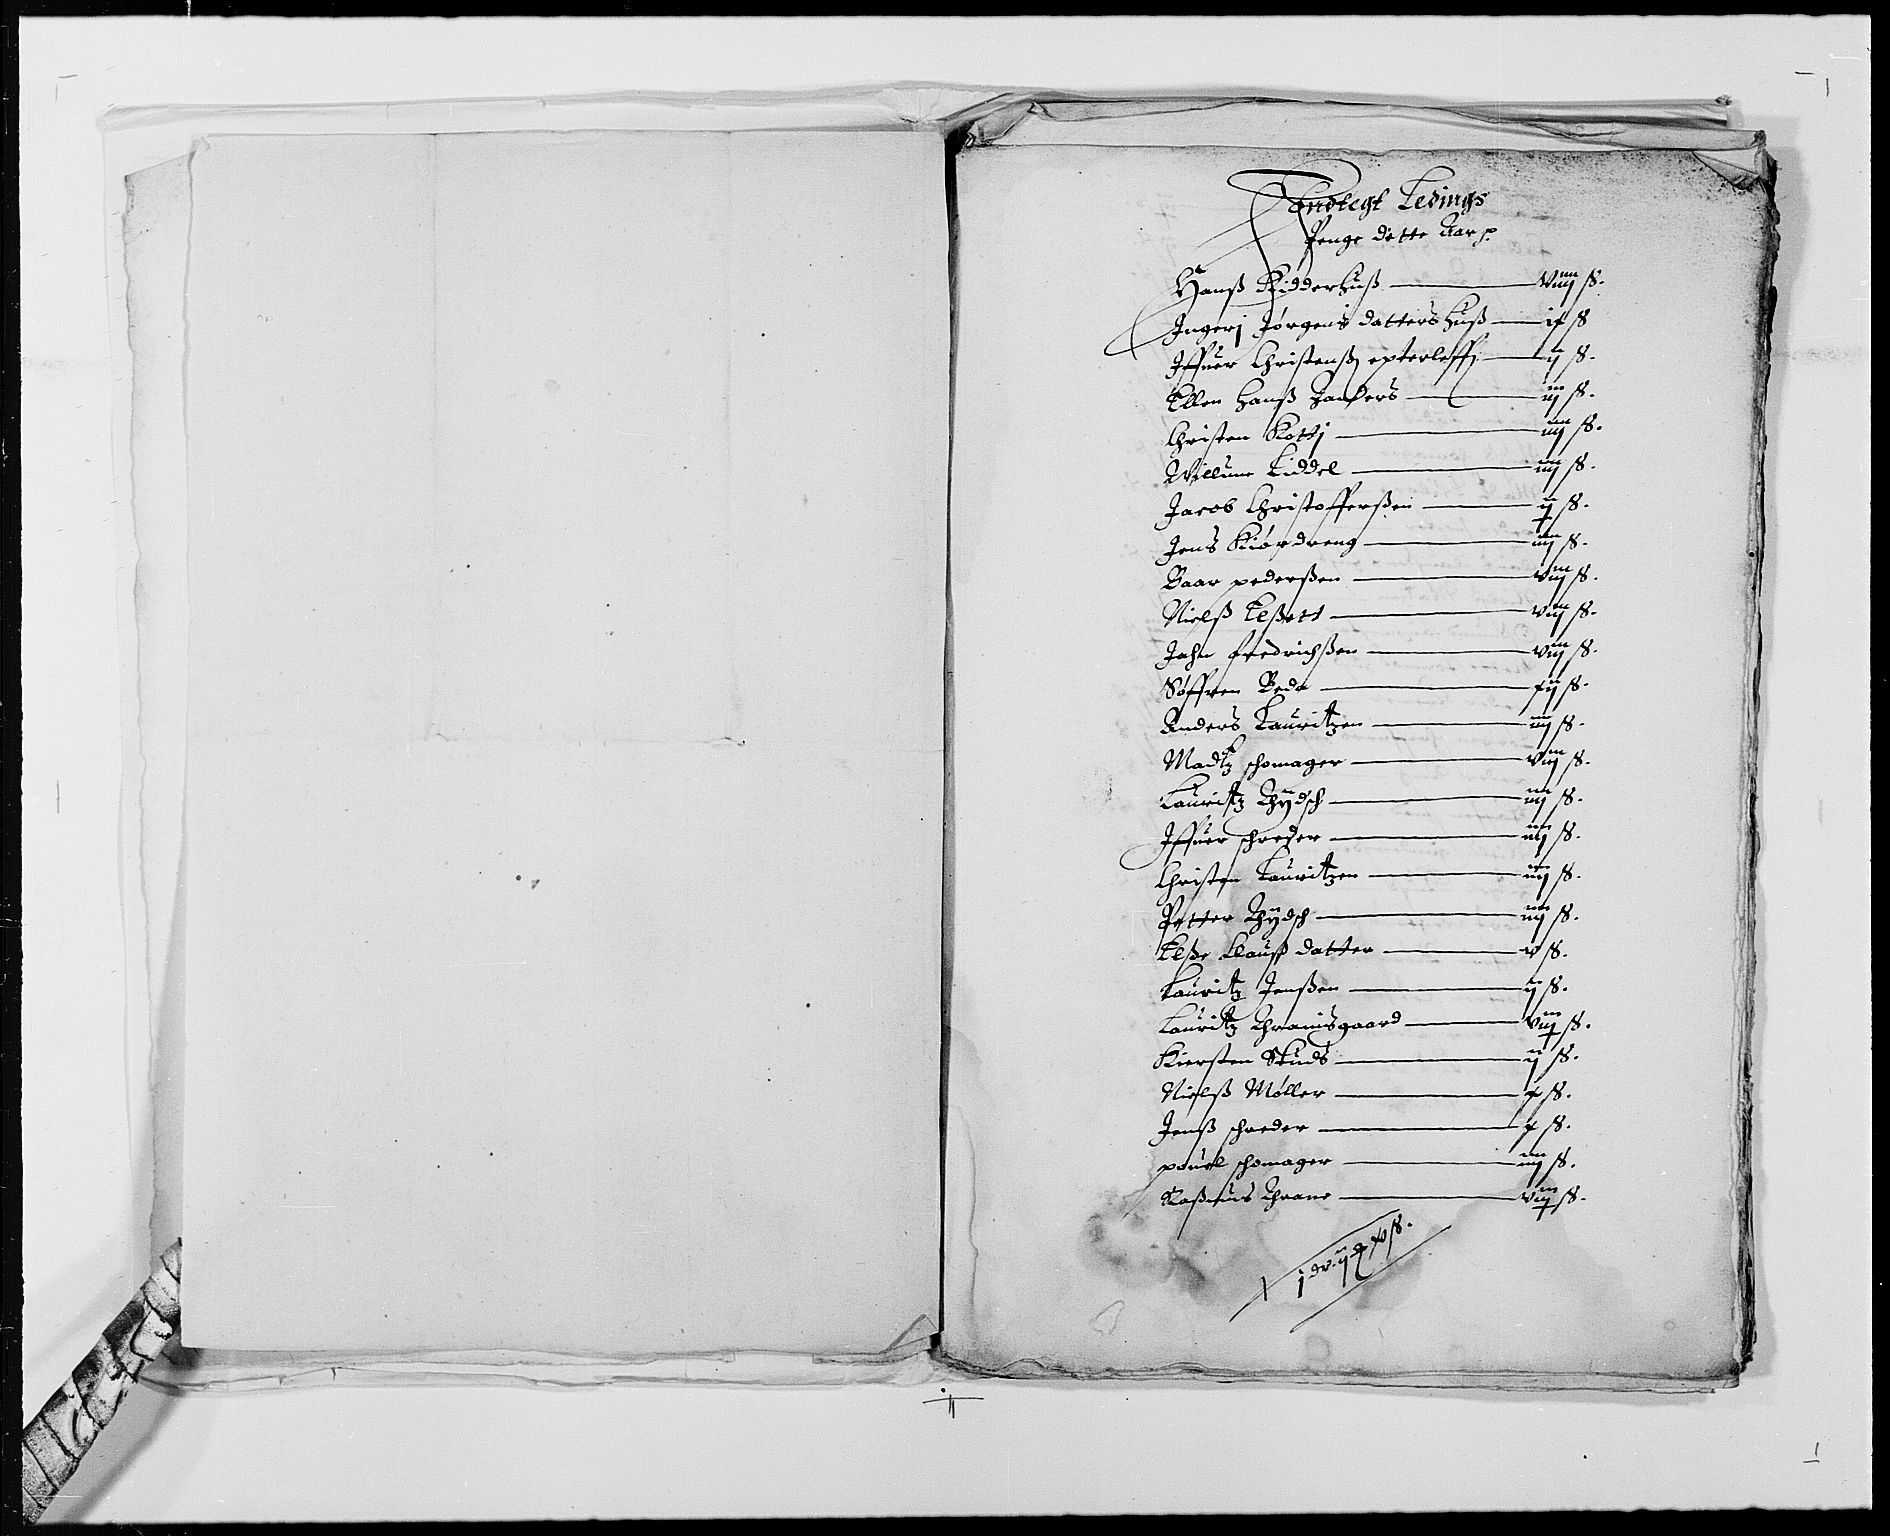 Endlegt Ledings
Penge dette Aar
Hanß Ridderhuß — viiij ß.
Ingerj Jørgens datters huß — ß
Iffuer Christenß epterleff — ij ß.
Ellen Hanß — iij ß.
Christen Kottj — iiij ß.
Willum Liddel — iiij ß.
Jacob Christofferßen — ij ß.
Jens Kiørdreng — iiij ß.
Baar pederßen — viij ß.
Nielß Elßett — viij ß.
Jahn fredrichßen — viij ß.
Søffren Beda — ß.
Anders Lauritzen — iiij ß.
Madtz schomager — viij ß.
Lauritz Thydsch — iiij ß.
Iffuer schreder — iiij ß.
Christen Lauritzen — iiij ß.
Petter Thydsch — iiij ß.
Elße Clauß datter — v ß.
Lauritz Jenßen — ij ß.
Lauritz Thranisgaard — viij ß.
Kiersten Skuds — ij ß.
Nielß Møller — ß.
Jenß schreder — ß.
pouel schomager — iiij ß.
Raßmus Thrane — viij ß.
j dr. ij ß.